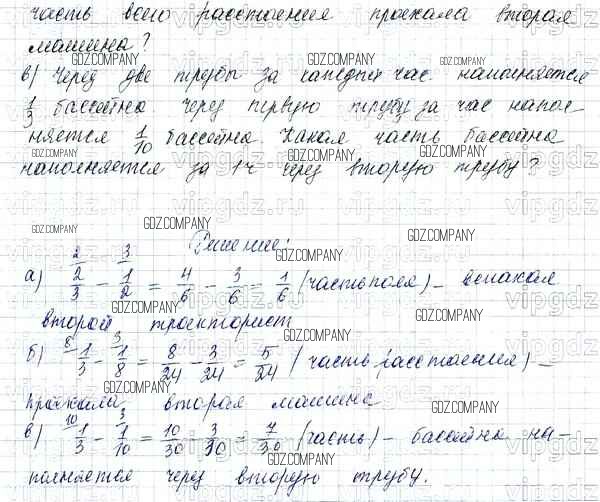 часть всего расстояния проехала вторая
машина?
в) Через две трубы за каждый час наполняется
1/3 бассейна через первую трубу за час напол-
няется 1/10 бассейна. Какая часть бассейна
наполняется за 1 ч через вторую трубу?
Решение:
а) 2/3 - 1/2 = 4/6 - 3/6 = 1/6 (часть поля) - вспахал
второй тракторист
б) 1/3 - 1/8 = 8/24 - 3/24 = 5/24 (часть расстояния) -
проехали вторая машина
в) 1/3 - 1/10 = 10/30 - 3/30 = 7/30 (часть) - бассейна на-
полняется через вторую трубу.